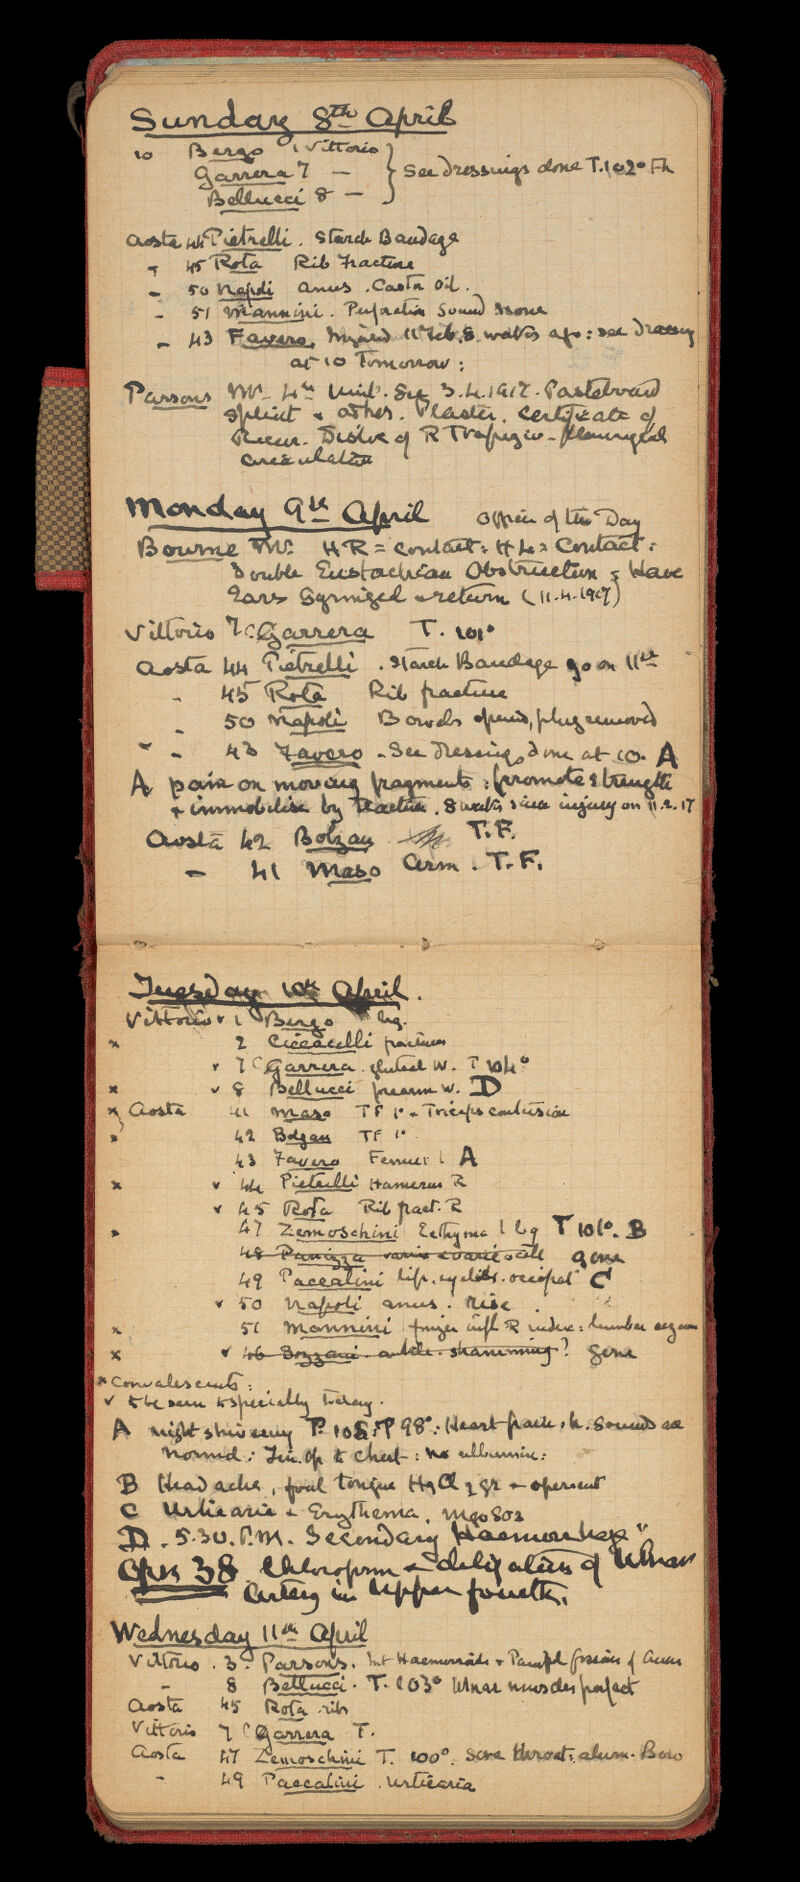 Sunday 8th April
10 Bergo 1 Vittorio
Garrera 7 —
Bellucci 8 — } See dressings done T. 102°
Aosta 44 Pietrelli . Starch Bandage
- 45 Rota Rib Fracture
- 50 Napoli anus . Castor Oil .
- 51 Mannini . Perforation Sound None
- 43 Favero. Injured 11 Feb. 8 weeks ago : see dressing
at 10 Tomorrow :
Parsons Mr. 4th Unit. See 3.4.1917. Pasteboard
splint & adhes. Plaster. Certificate of
Recur. Disloc of R Trapezio-
Monday 9th April Officer of the Day
Bourne Mr. HR = contact : HL = Contact :
Double Eustachian Obstruction : Have
Ears Syringed & return (11.4.1917)
Vittorio 7 C Garrera T. 101°
Aosta 44 Pietrelli . Starch Bandage go on 11th
- 45 Rota Rib fracture
- 50 Napoli Bowels opened, plug removed
- - 43 Favero - See dressing done at 10. A
A pain on moving fragments : promote strength
& immobilise by traction . 8 weeks since injury on 11.2.17
Aosta 42 Bolzan T.F.
- 41 Maso Arm . T.F.
Tuesday 10th April .
Vittorio v 1 Bergo leg.
x 2 Ciccacelli fracture
v 7 C Garrera . gluteal w. T 104°
x v 8 Bellucci forearm w. D
x Aosta 41 Maso TF 1° & Triceps contusion
x 42 Bolzan TF 1°
43 Favero Femur l A
x v 44 Pietrelli Humerus R
v 45 Rota Rib fract. R
x 47 Zemoschini Ecthyma l leg T 101°. B
48 Panizza gone
49 Paccalini lip. eyelids. occiput C
v 50 Napoli anus . rise .
x 51 Mannini finger infl R index : lumbar
x v 46 Bozzani . ankle . shamming ? Gone
x Convalescents :
v to be seen especially today .
A night shivering P. 98° : Heart frail, h. sounds are
normal : Lin. Op to Chest : no albumin :
B Headache, foul tongue HgCl 2 gr & aperient
C Urticaria & Erythema, MgoSo3
D . 5.30. P.M. Secondary Haemorrhage "
Opn 38 Chloroform & deligation of Ulnar
Artery in upper fourth.
Wednesday 11th April
Vittorio . 3. Parsons. Int Haemorroids & Painful fissure of Anus
- 8 Bellucci . T. 103° Ulnar muscles perfect
Aosta 45 Rota ribs
Vittorio 7 C Garrera T.
Aosta 47 Zemoschini T. 100°. Sore throat : alum. Boro
- 49 Paccalini . Urticaria